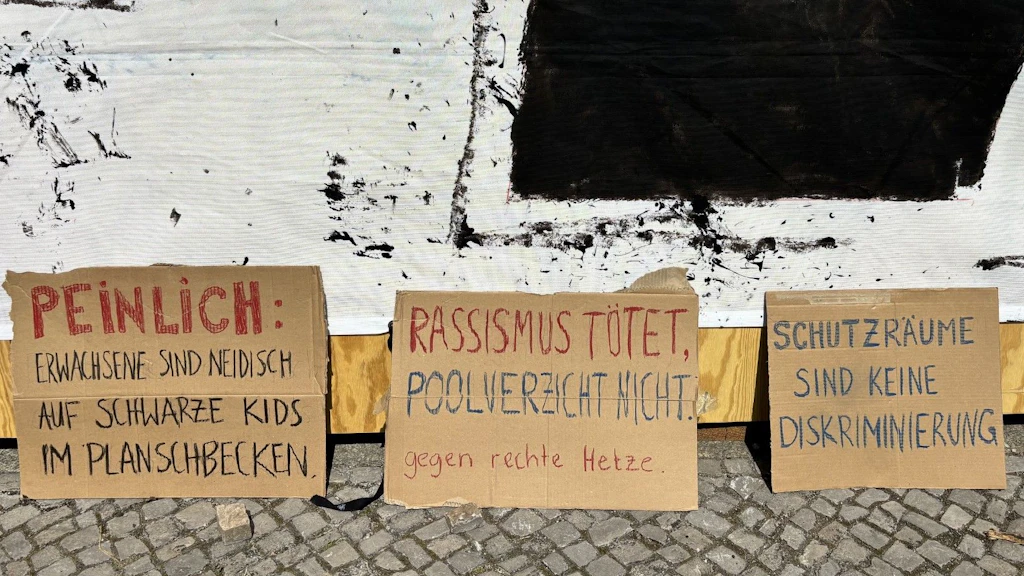 PEiNLiCH:
ERWACHSENE SIND NEIDISCH
AUF SCHWARZE KIDS
IM PLANSCHBECKEN.
RASSISMUS TÖTET,
POOLVERZICHT NICHT.
gegen rechte Hetze.
SCHUTZRÄUME
SIND KEINE
DISKRIMINIERUNG